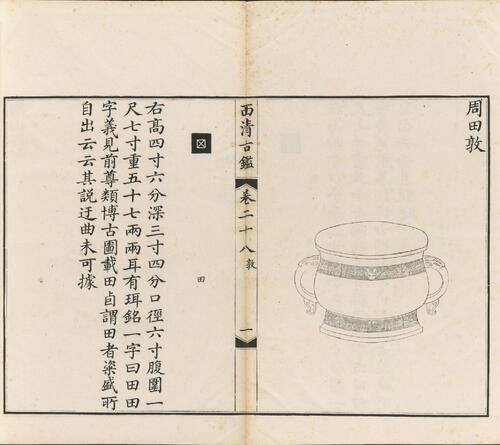 周田敦
西清古鑑
卷二十八 敦
一
田
右高四寸六分深三寸四分口徑六寸腹圍一
尺七寸重五十七兩兩耳有珥銘一字曰田田
字義見前尊類博古圖載田卣謂田者粢盛所
自出云云其説迂曲未可據